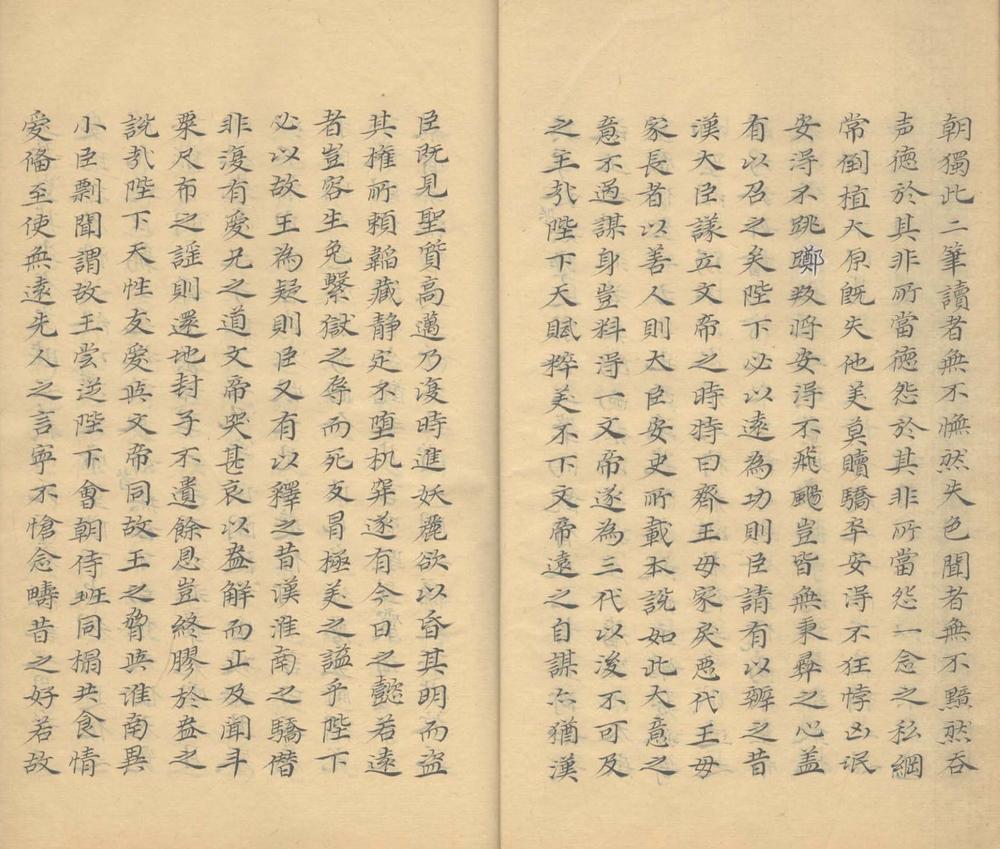 朝獨此二筆讀者無不憮然失色聞者無不黯然吞
声德於其非所當德怨於其非所當怨一念之私綱
常倒植大原旣失他美莫贖驕卒安得不狂悖凶氓
安得不跳躑叛將安得不飛颺豈皆無秉彛之心盖
有以召之矣陛下必以遠為功則臣請有以辨之昔
漢大臣議立文帝之時特曰齊王母家戾悪代王母
家長者以善人則大臣安史所載本說如此大意之
意不過謀身豈料得一文帝遂為三代以後不可及
之主㢤陛下天賦粹美不下文帝遠之自謀亦猶漢
臣既見聖質高邁乃復時進妖麗欲以昏其明而盗
其權所頼韜藏静定不墮机穽遂有今日之懿若遠
者豈容生免繫獄之辱而死反冒極美之諡乎陛下
必以故王為疑則臣又有以釋之昔漢淮南之驕僭
非復有愛兄之道文帝哭甚哀以盎解而止及聞斗
粟尺布之謡則還地封子不遺餘恩豈終膠於盎之
說㢤陛下天性友愛與文帝同故王之賢與淮南異
小臣剽聞謂故王嘗逆陛下會朝侍班同榻共食情
愛俻至使無遠先人之言寧不愴念疇昔之好若故